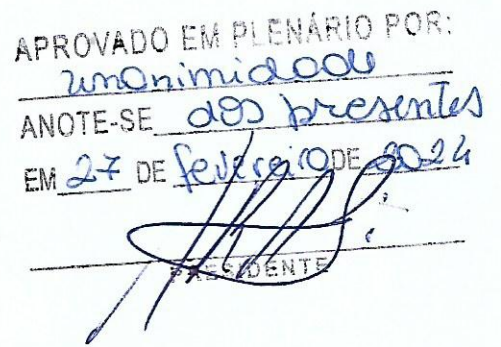 APROVADO EM PLENÁRIO POR:
unanimidade
ANOTE-SE dos presentes
EM 27 DE fevereiro DE 2024
PRESIDENTE